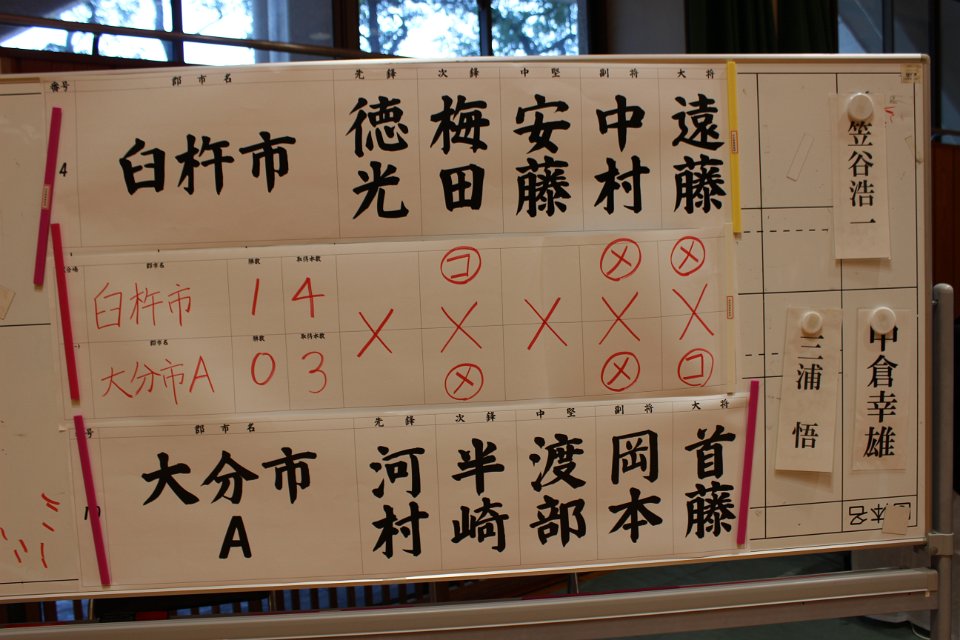 番号 郡市名 先鋒 次鋒 中堅 副将 大将
4 臼杵市 徳光 梅田 安藤 中村 遠藤
郡市名 勝数 取得本数
臼杵市 1 4 コ メ メ
× × × × ×
郡市名 勝数 取得本数
大分市A 0 3 メ メ コ
号 郡市名 先鋒 次鋒 中堅 副将 大将
大分市A 河村 半崎 渡部 岡本 首藤
笠谷浩一
中倉幸雄
三浦 悟
本名